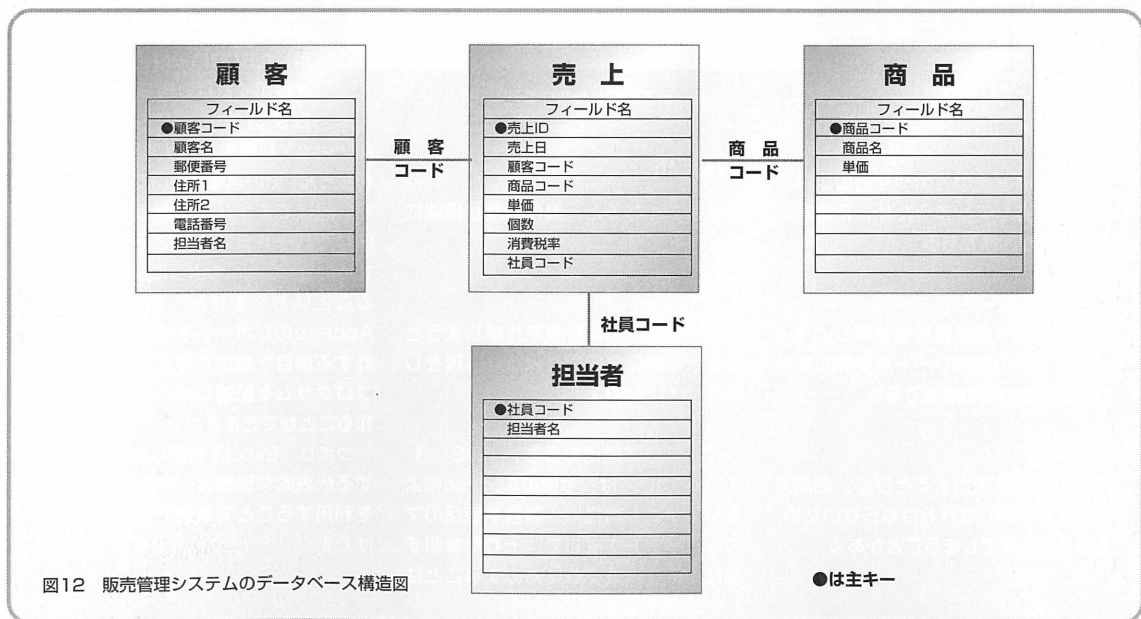 顧 客
フィールド名
●顧客コード
顧客名
郵便番号
住所1
住所2
電話番号
担当者名
顧 客
コード
売 上
フィールド名
●売上ID
売上日
顧客コード
商品コード
単価
個数
消費税率
社員コード
商 品
コード
商 品
フィールド名
●商品コード
商品名
単価
社員コード
担当者
●社員コード
担当者名
図12 販売管理システムのデータベース構造図
●は主キー